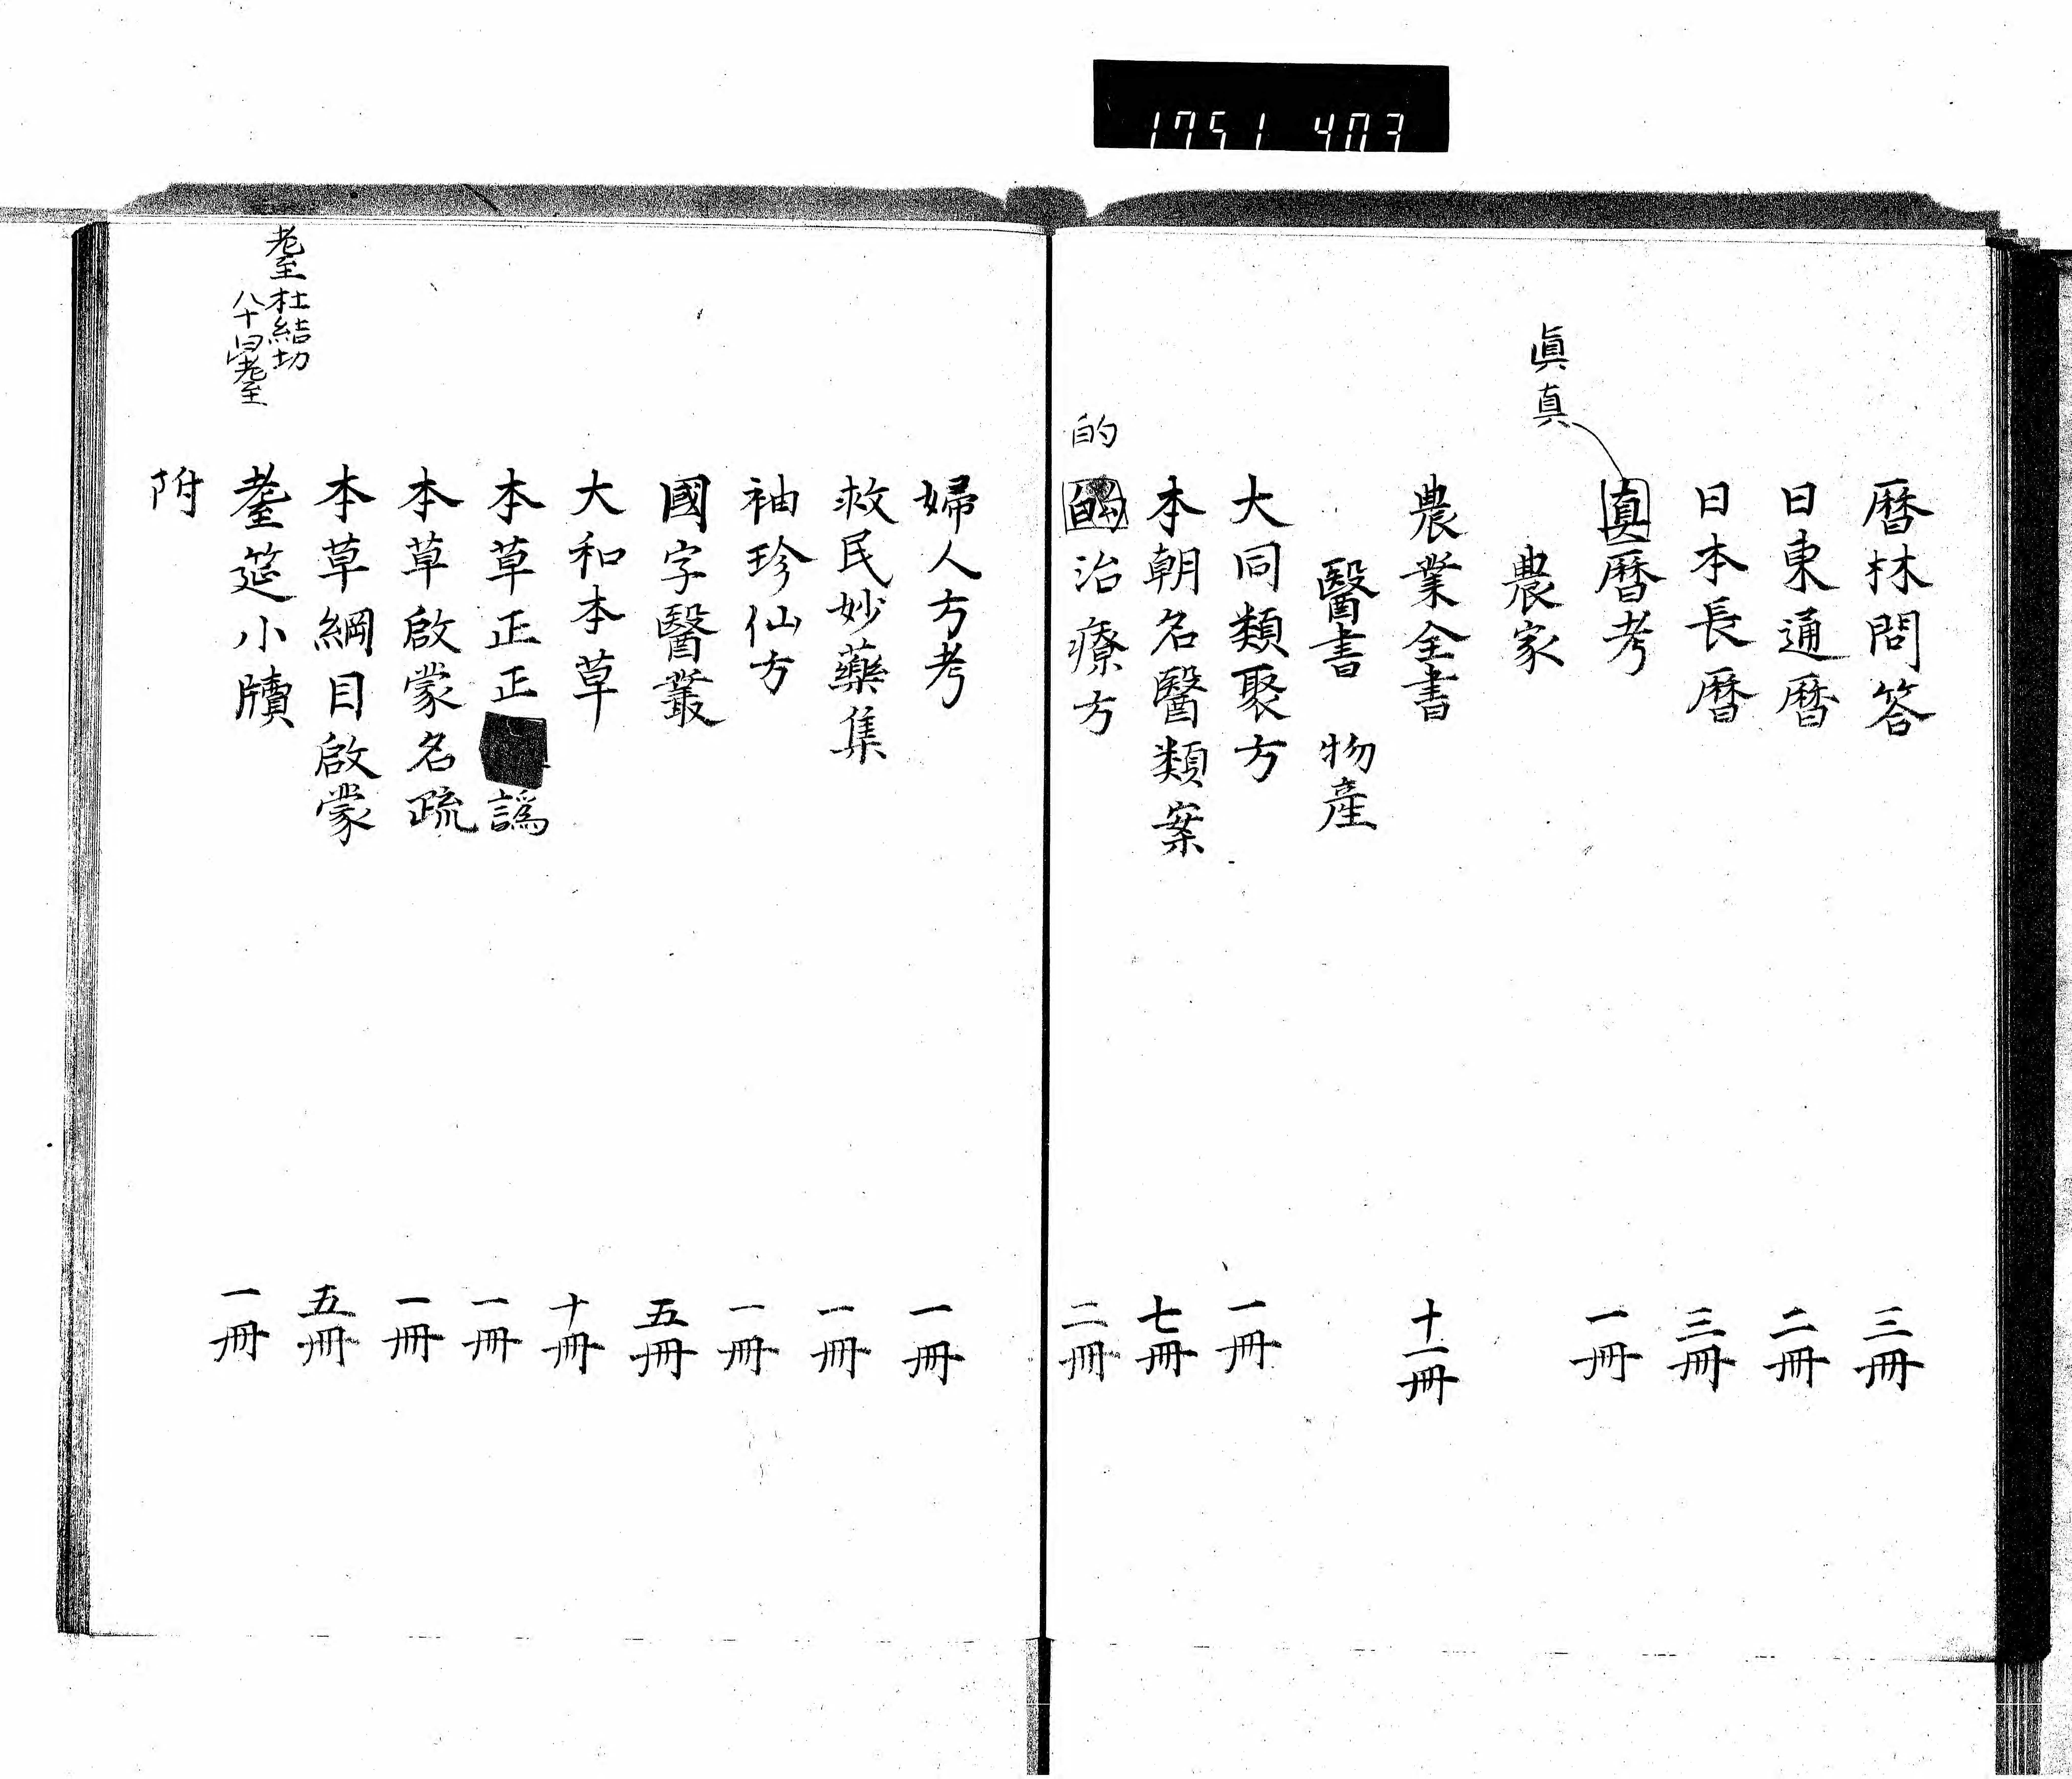 1751 403
曆林問答 三冊
日東通曆 二冊
日本長曆 三冊
眞真
真曆考 一冊
農家
農業全書 十一冊
醫書 物產
大同類聚方 一冊
本朝名醫類案 七冊
的
治療方 二冊
婦人方考 一冊
救民妙藥集 一冊
袖珍仙方 一冊
國字醫叢 五冊
大和本草 十冊
本草正正譌 一冊
本草啟蒙名疏 一冊
本草綱目啟蒙 五冊
耋 杜結切
八十曰耋
耋筵小牘 一冊
附